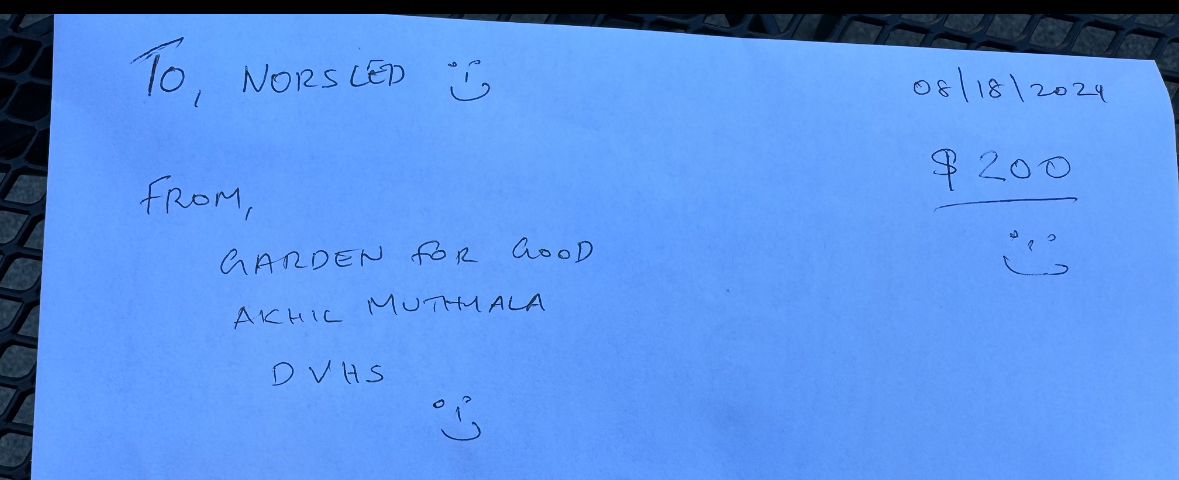 TO, NORSLED
08/18/2024
$200
FROM,
GARDEN FOR GOOD
AKHIL MUTHYALA
DVHS